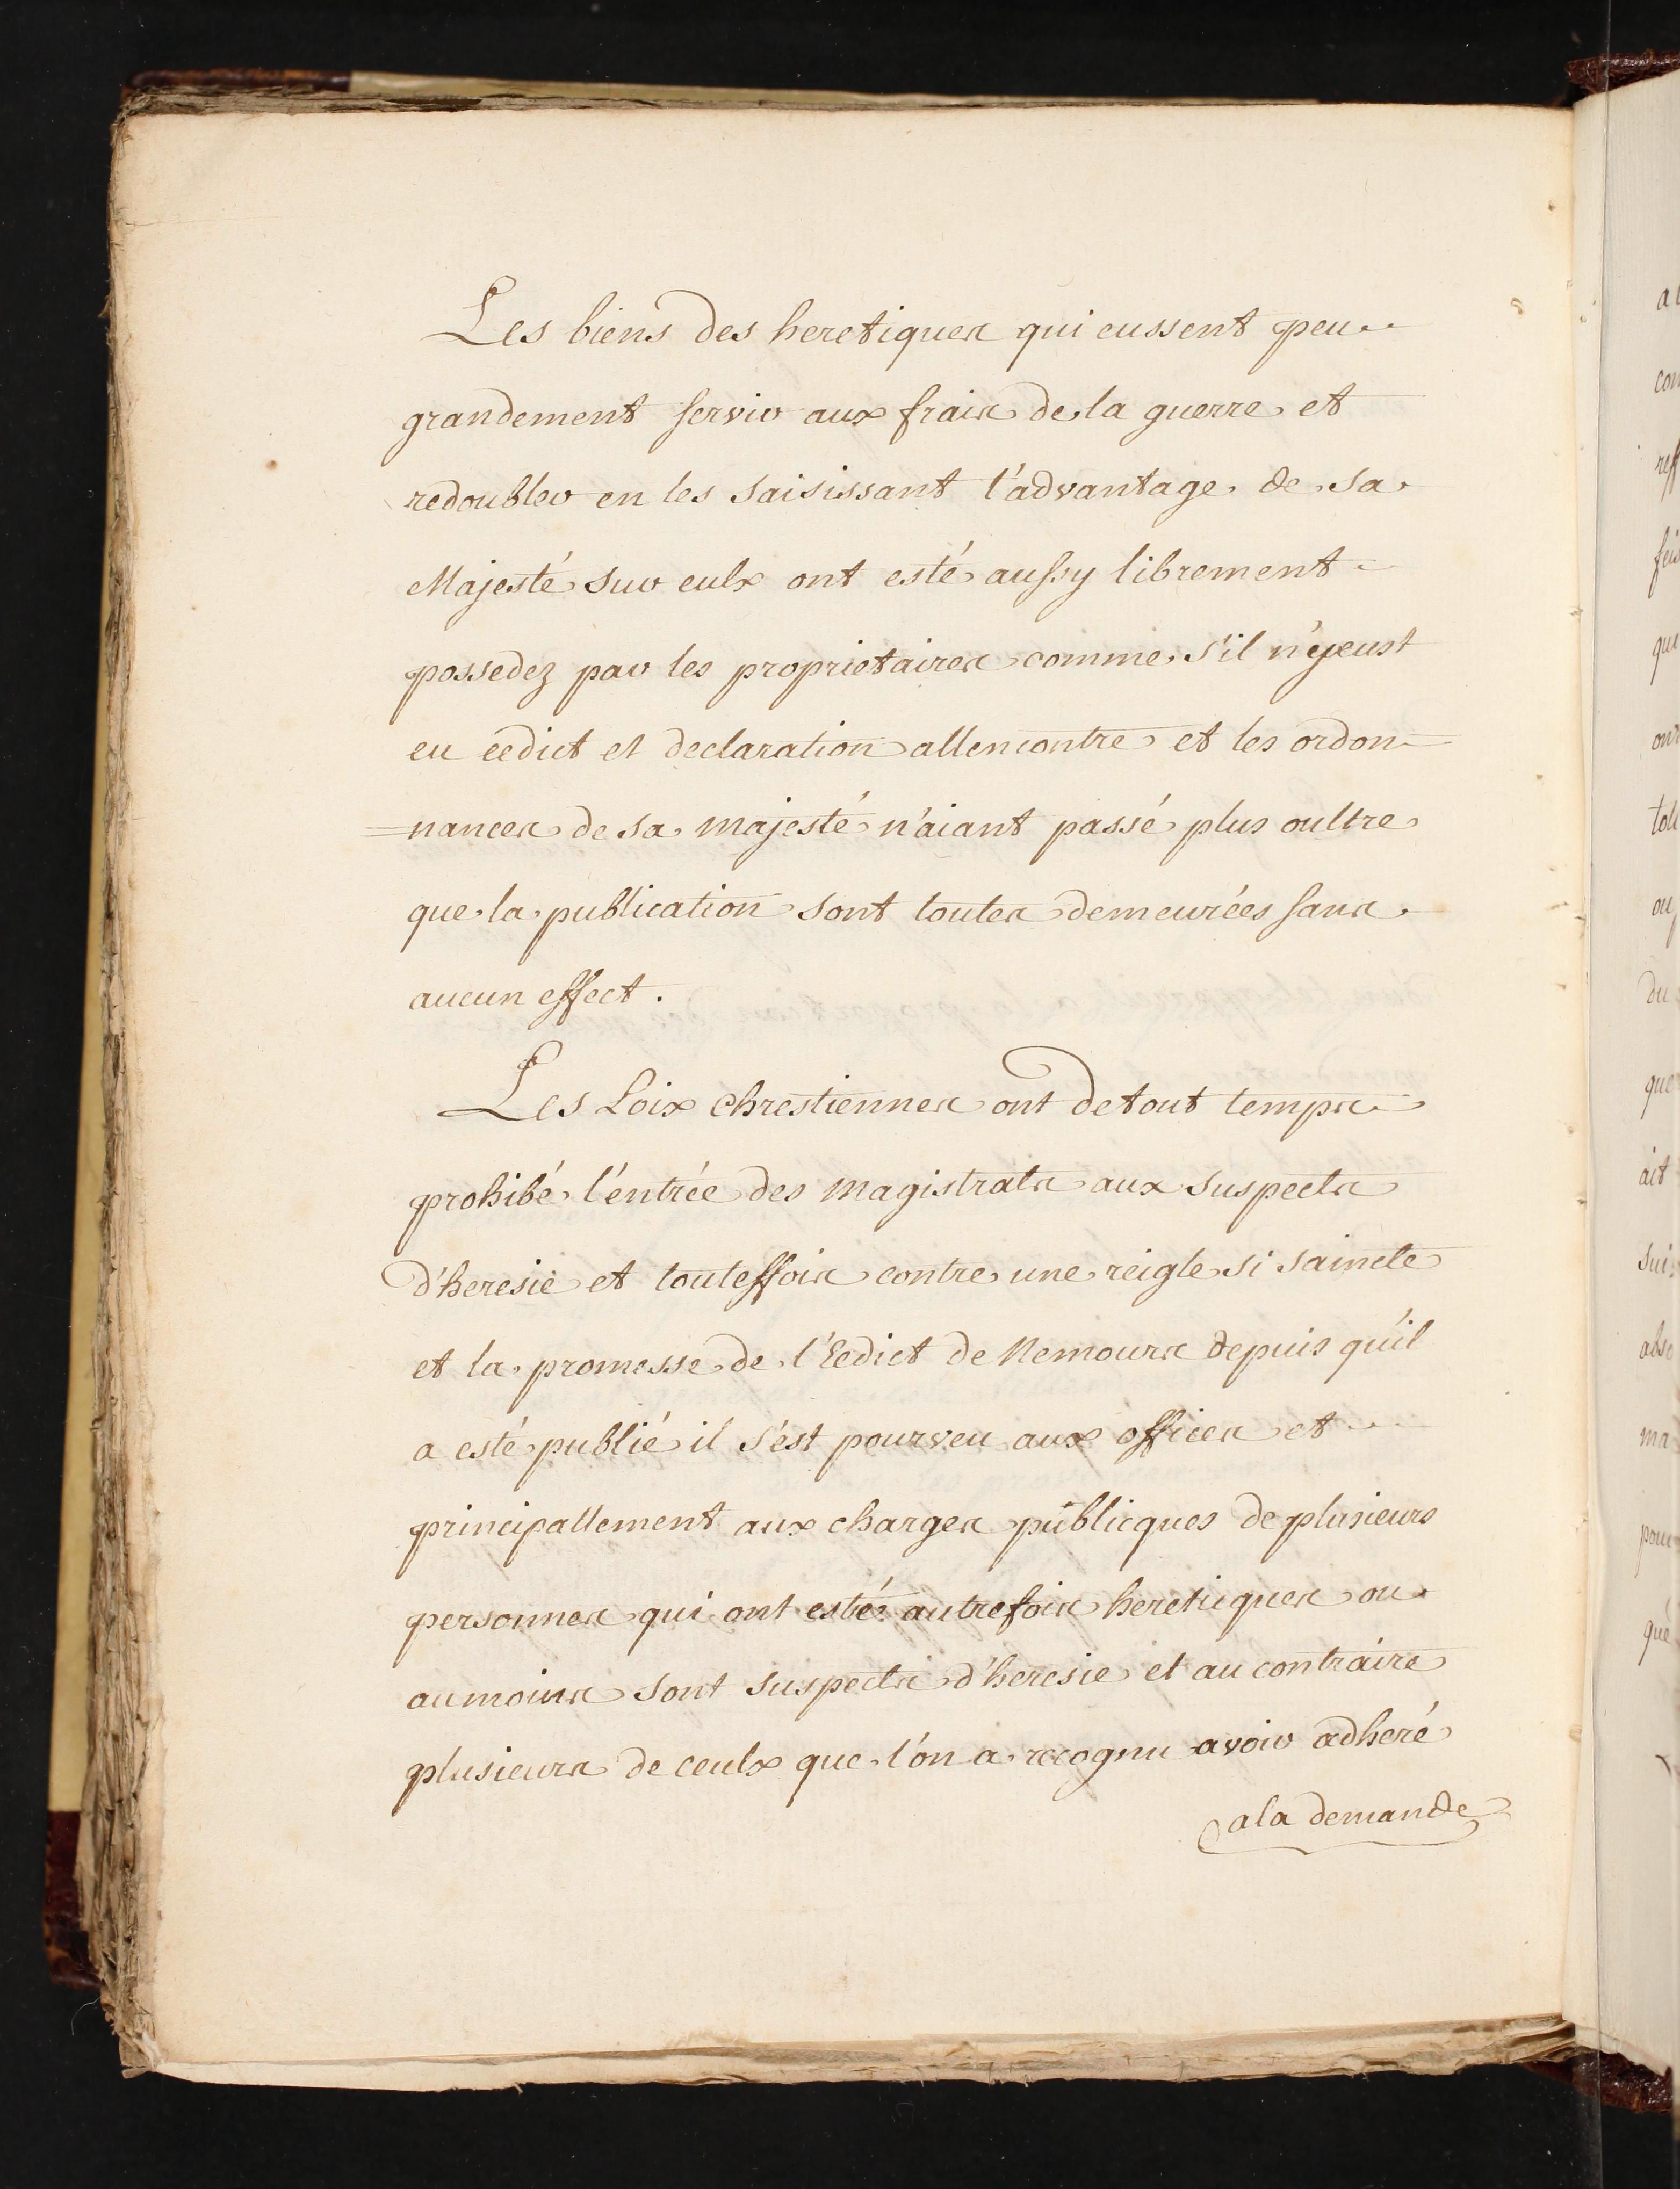 Les biens des heretiques qui eussent peu
grandement servir aux frais de la guerre et
redoubler en les saisissant l'advantage de sa
Majesté sur eulx ont esté aussy librement
possedez par les proprietaires comme s'il n'yeust
eu eedict et declaration allencontre et les ordon=
=nances de sa majesté n'aiant passé plus oultre
que la publication sont toutes demeurées sans
aucun effect.
Les Loix chrestiennes ont detout temps
prohibé l'entrée des magistrats aux suspects
d'heresie et touteffois contre une reigle si saincte
et la promesse de l'Eedict de Nemours depuis qu'il
a esté publié il s'est pourveu aux offices et
principallement aux charges publicques de plusieurs
personnes qui ont esté autrefois hereticques ou
aumoins sont suspects d'heresie et au contraire
plusieurs de ceulx que l'on a recognu avoir adheré
ala demande